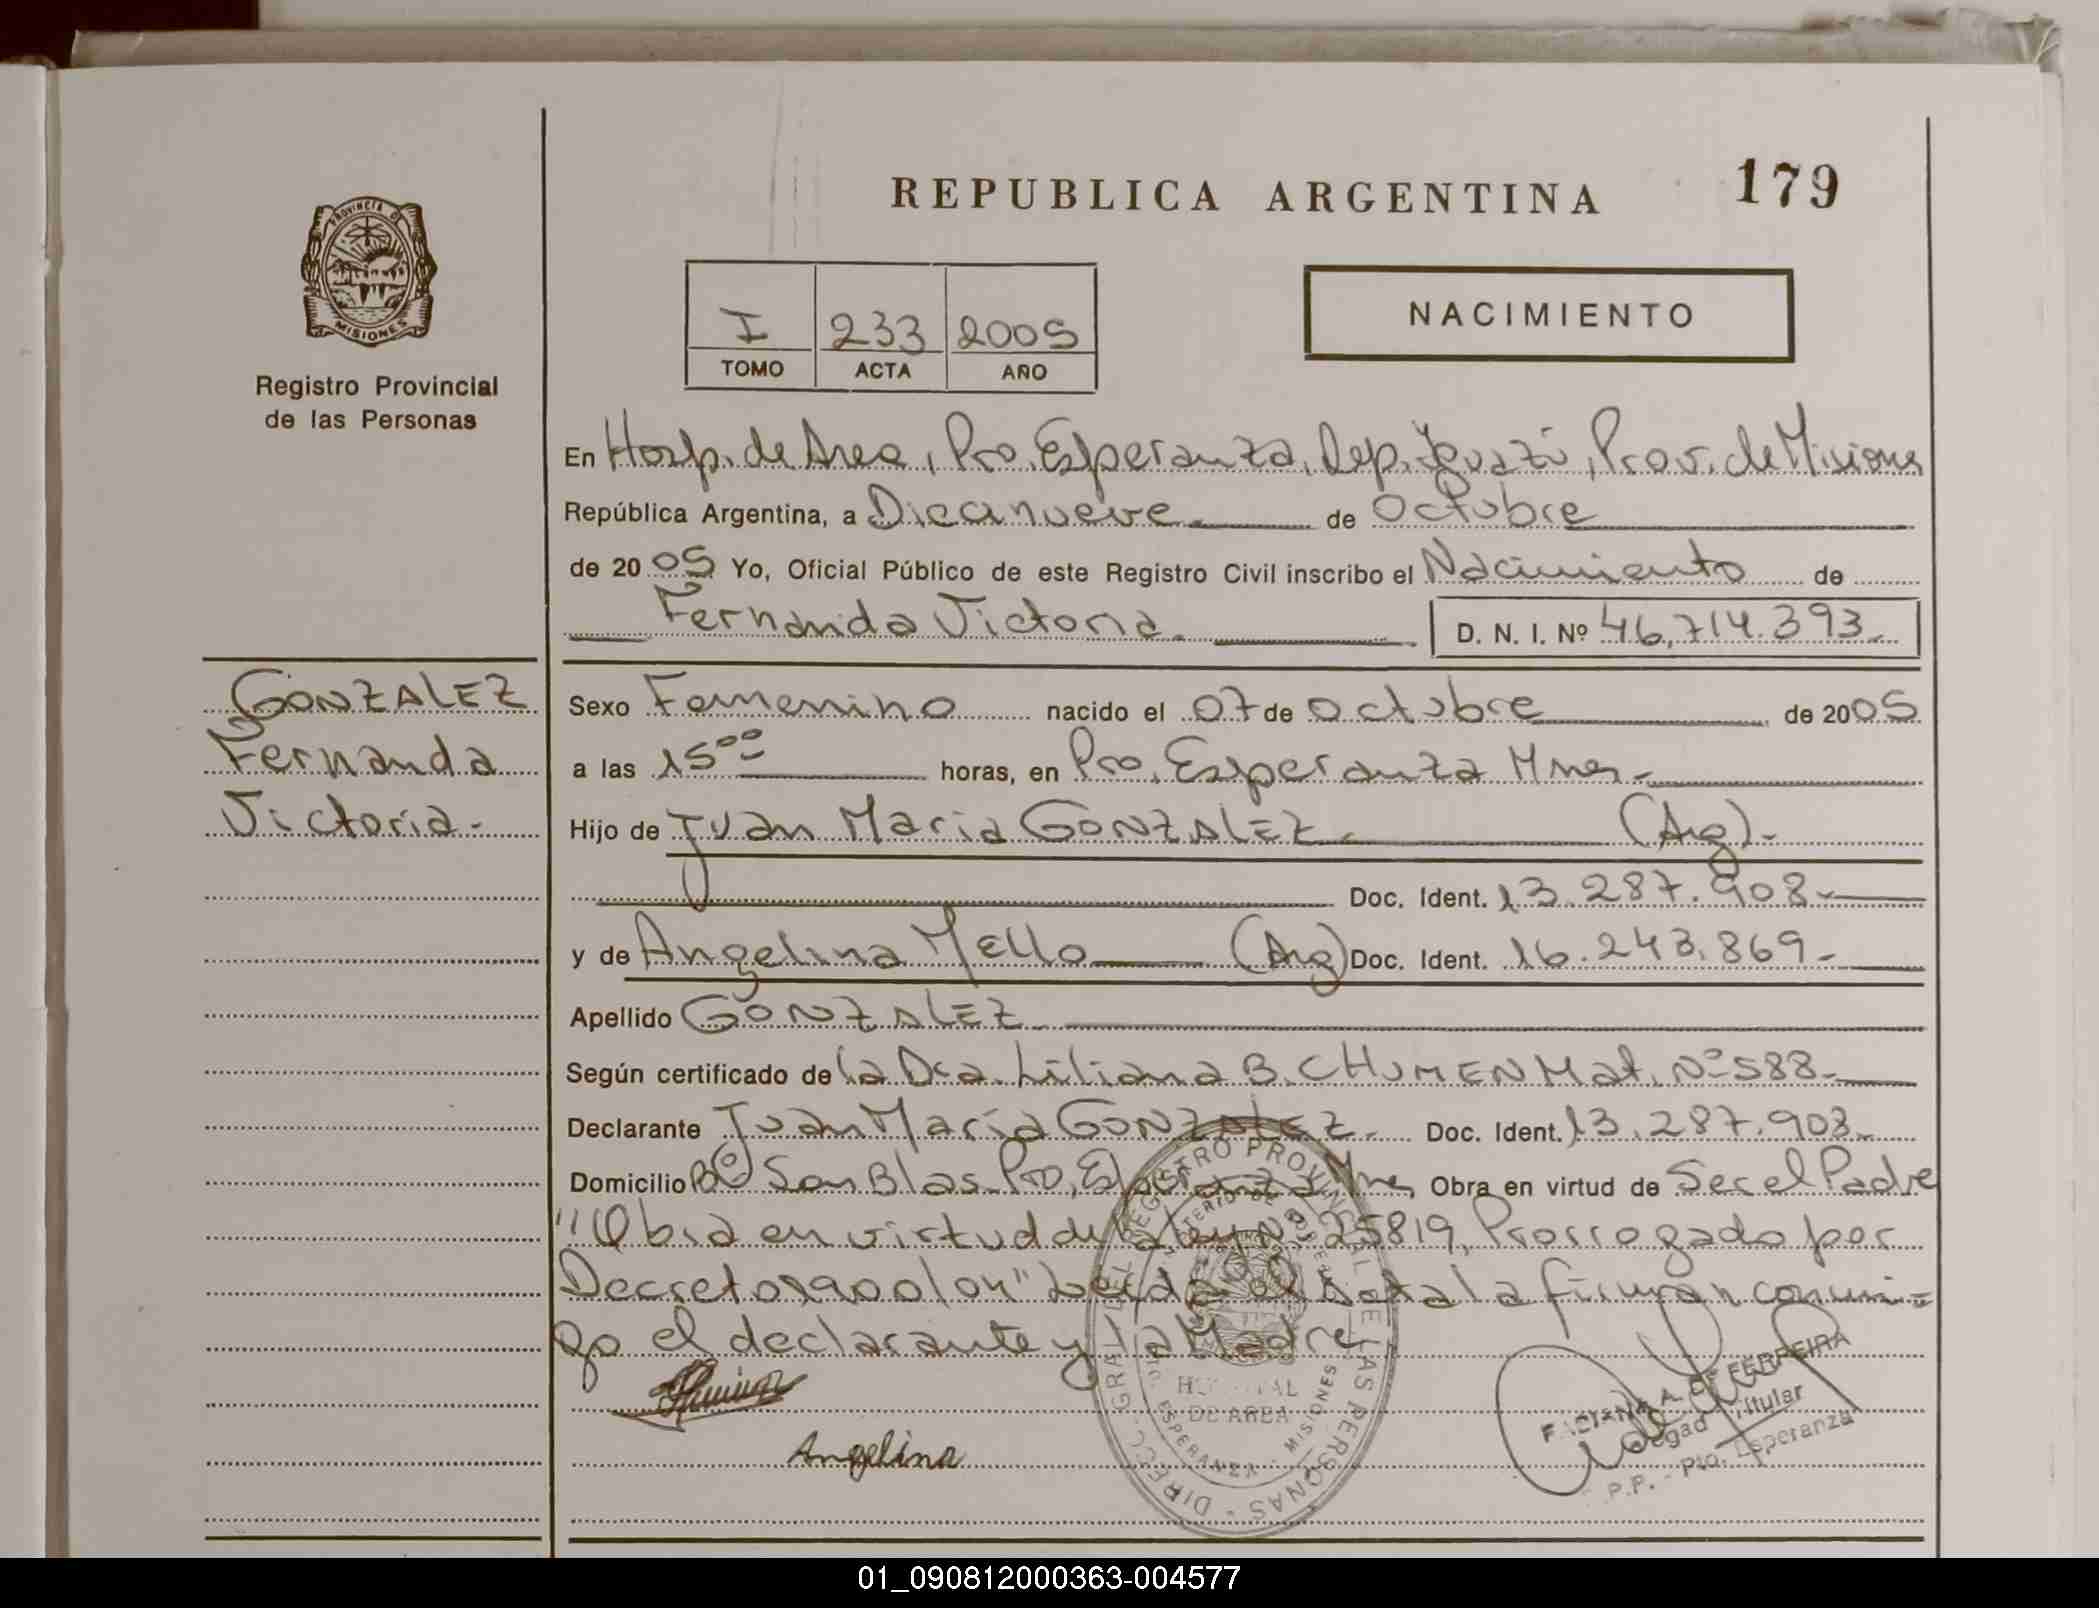 REPUBLICA ARGENTINA 179
PROVINCIA DE
MISIONES
Registro Provincial
de las Personas
I 233 2005
TOMO ACTA AÑO
NACIMIENTO
En Hosp. de Area, Pto. Esperanza, Dep. Iguazú, Prov. de Misiones
República Argentina, a Diecinueve de Octubre
de 2005 Yo, Oficial Público de este Registro Civil inscribo el Nacimiento de
Fernanda Victoria. D. N. I. Nº 46,714.393.
GONZALEZ
Fernanda
Victoria.
Sexo Femenino nacido el 07 de Octubre de 2005
a las 15 00 horas, en Pto. Esperanza Mnes.
Hijo de Juan Maria GONZALEZ. (Arg).
Doc. Ident. 13.287.908.
y de Angelina Mello (Arg) Doc. Ident. 16.243.869.
Apellido GONZALEZ
Según certificado de la Dra. Liliana B. CHUMEN Mat. Nº 588.
Declarante Juan María GONZALEZ. Doc. Ident. 13.287.908.
Domicilio Bº San Blas Pto. Esperanza Mnes Obra en virtud de Ser el Padre
"Obra en virtud de la ley Nº 25819, Prorrogado por
Decreto 1900/04" Leida el Acta la firman conmi=
go el declarante y la Madre
Angelina
DIRECC. GRAL. DEL REGISTRO PROVINCIAL DE LAS PERSONAS
HOSPITAL
DE AREA
ESPERANZA - MISIONES
FERREIRA
Titular
R.P.P. - Pto. Esperanza
01_090812000363-004577